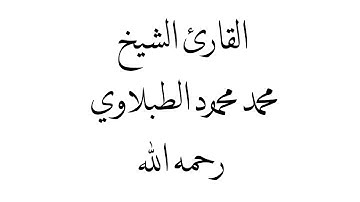 القارئ الشيخ
محمد محمود الطبلاوي
رحمه الله